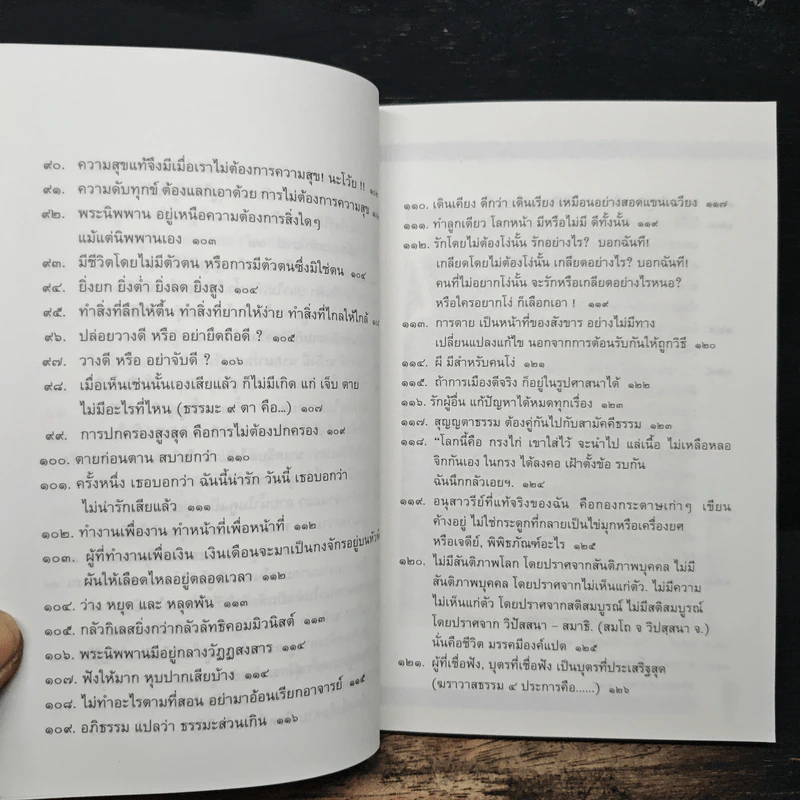 ๙๐. ความสุขแท้จึงมีเมื่อเราไม่ต้องการความสุข! นะโว้ย !!
๙๑. ความดับทุกข์ ต้องแลกเอาด้วย การไม่ต้องการความสุข
๙๒. พระนิพพาน อยู่เหนือความต้องการสิ่งใดๆ
แม้แต่นิพพานเอง ๑๐๓
๙๓. มีชีวิตโดยไม่มีตัวตน หรือการมีตัวตนซึ่งมิใช่ตน ๑๐๔
๙๔. ยิ่งยก ยิ่งต่ำ ยิ่งลด ยิ่งสูง ๑๐๔
๙๕. ทำสิ่งที่ลึกให้ตื้น ทำสิ่งที่ยากให้ง่าย ทำสิ่งที่ไกลให้ใกล้
๙๖. ปล่อยวางดี หรือ อย่ายึดถือดี ? ๑๐๕
๙๗. วางดี หรือ อย่าจับดี ? ๑๐๖
๙๘. เมื่อเห็นเช่นนั้นเองเสียแล้ว ก็ไม่มีเกิด แก่ เจ็บ ตาย
ไม่มีอะไรที่ไหน (ธรรมะ ๙ ตา คือ...) ๑๐๗
๙๙. การปกครองสูงสุด คือการไม่ต้องปกครอง ๑๐๙
๑๐๐. ตายก่อนตาน สบายกว่า ๑๑๐
๑๐๑. ครั้งหนึ่ง เธอบอกว่า ฉันนี้น่ารัก วันนี้ เธอบอกว่า
ไม่น่ารักเสียแล้ว ๑๑๑
๑๐๒. ทำงานเพื่องาน ทำหน้าที่เพื่อหน้าที่ ๑๑๒
๑๐๓. ผู้ที่ทำงานเพื่อเงิน เงินเดือนจะมาเป็นกงจักรอยู่บน
ผันให้เลือดไหลอยู่ตลอดเวลา ๑๑๒
๑๐๔. ว่าง หยุด และ หลุดพ้น ๑๑๓
๑๐๕. กลัวกิเลสยิ่งกว่ากลัวลัทธิคอมมิวนิสต์ ๑๑๓
๑๐๖. พระนิพพานมีอยู่กลางวัฏฏสงสาร ๑๑๔
๑๐๗. ฟังให้มาก หุบปากเสียบ้าง ๑๑๔
๑๐๘. ไม่ทำอะไรตามที่สอน อย่ามาอ้อนเรียกอาจารย์ ๑๑๕
๑๐๙. อภิธรรม แปลว่า ธรรมะส่วนเกิน ๑๑๖
๑๑๐. เดินเคียง ดีกว่า เดินเรียง เหมือนอย่างสอดแขนเฉวียง ๑๑๗
๑๑๑. ทำลูกเดียว โลกหน้า มีหรือไม่มี ดีทั้งนั้น ๑๑๙
๑๑๒. รักโดยไม่ต้องโง่นั้น รักอย่างไร? บอกฉันที!
เกลียดโดยไม่ต้องโง่นั้น เกลียดอย่างไร? บอกฉันที!
คนที่ไม่อยากโง่นั้น จะรักหรือเกลียดอย่างไรหนอ?
หรือใครอยากโง่ ก็เลือกเอา ! ๑๑๙
๑๑๓. การตาย เป็นหน้าที่ของสังขาร อย่างไม่มีทาง
เปลี่ยนแปลงแก้ไข นอกจากการต้อนรับกันให้ถูกวิธี ๑๒๐
๑๑๔. ผี มีสำหรับคนโง่ ๑๒๑
๑๑๕. ถ้าการเมืองดีจริง ก็อยู่ในรูปศาสนาได้ ๑๒๒
๑๑๖. รักผู้อื่น แก้ปัญหาได้หมดทุกเรื่อง ๑๒๓
๑๑๗. สุญญตาธรรม ต้องคู่กันไปกับสามัคคีธรรม ๑๒๓
๑๑๘. "โลกนี้คือ กรงไก่ เขาใส่ไว้ จะนำไป แล่เนื้อ ไม่เหลือหลอ
จิกกันเอง ในกรง ได้ลงคอ เฝ้าตั้งข้อ รบกัน
ฉันนึกกลัวเอยฯ ๑๒๔
๑๑๙. อนุสาวรีย์ที่แท้จริงของฉัน คือกองกระดาษเก่าๆ เขียน
ค้างอยู่ ไม่ใช่กระดูกที่กลายเป็นไข่มุกหรือเครื่องยศ
หรือเจดีย์, พิพิธภัณฑ์อะไร ๑๒๕
๑๒๐. ไม่มีสันติภาพโลก โดยปราศจากสันติภาพบุคคล ไม่มี
สันติภาพบุคคล โดยปราศจากไม่เห็นแก่ตัว. ไม่มีความ
ไม่เห็นแก่ตัว โดยปราศจากสติสมบูรณ์ ไม่มีสติสมบูรณ์
โดยปราศจาก วิปัสสนา – สมาธิ. (สมโถ จ วิปสฺสนา จ.)
นั่นคือชีวิต มรรคมีองค์แปด ๑๒๕
๑๒๑. ผู้ที่เชื่อฟัง, บุตรที่เชื่อฟัง เป็นบุตรที่ประเสริฐสุด
(ฆราวาสธรรม ๔ ประการคือ......) ๑๒๖